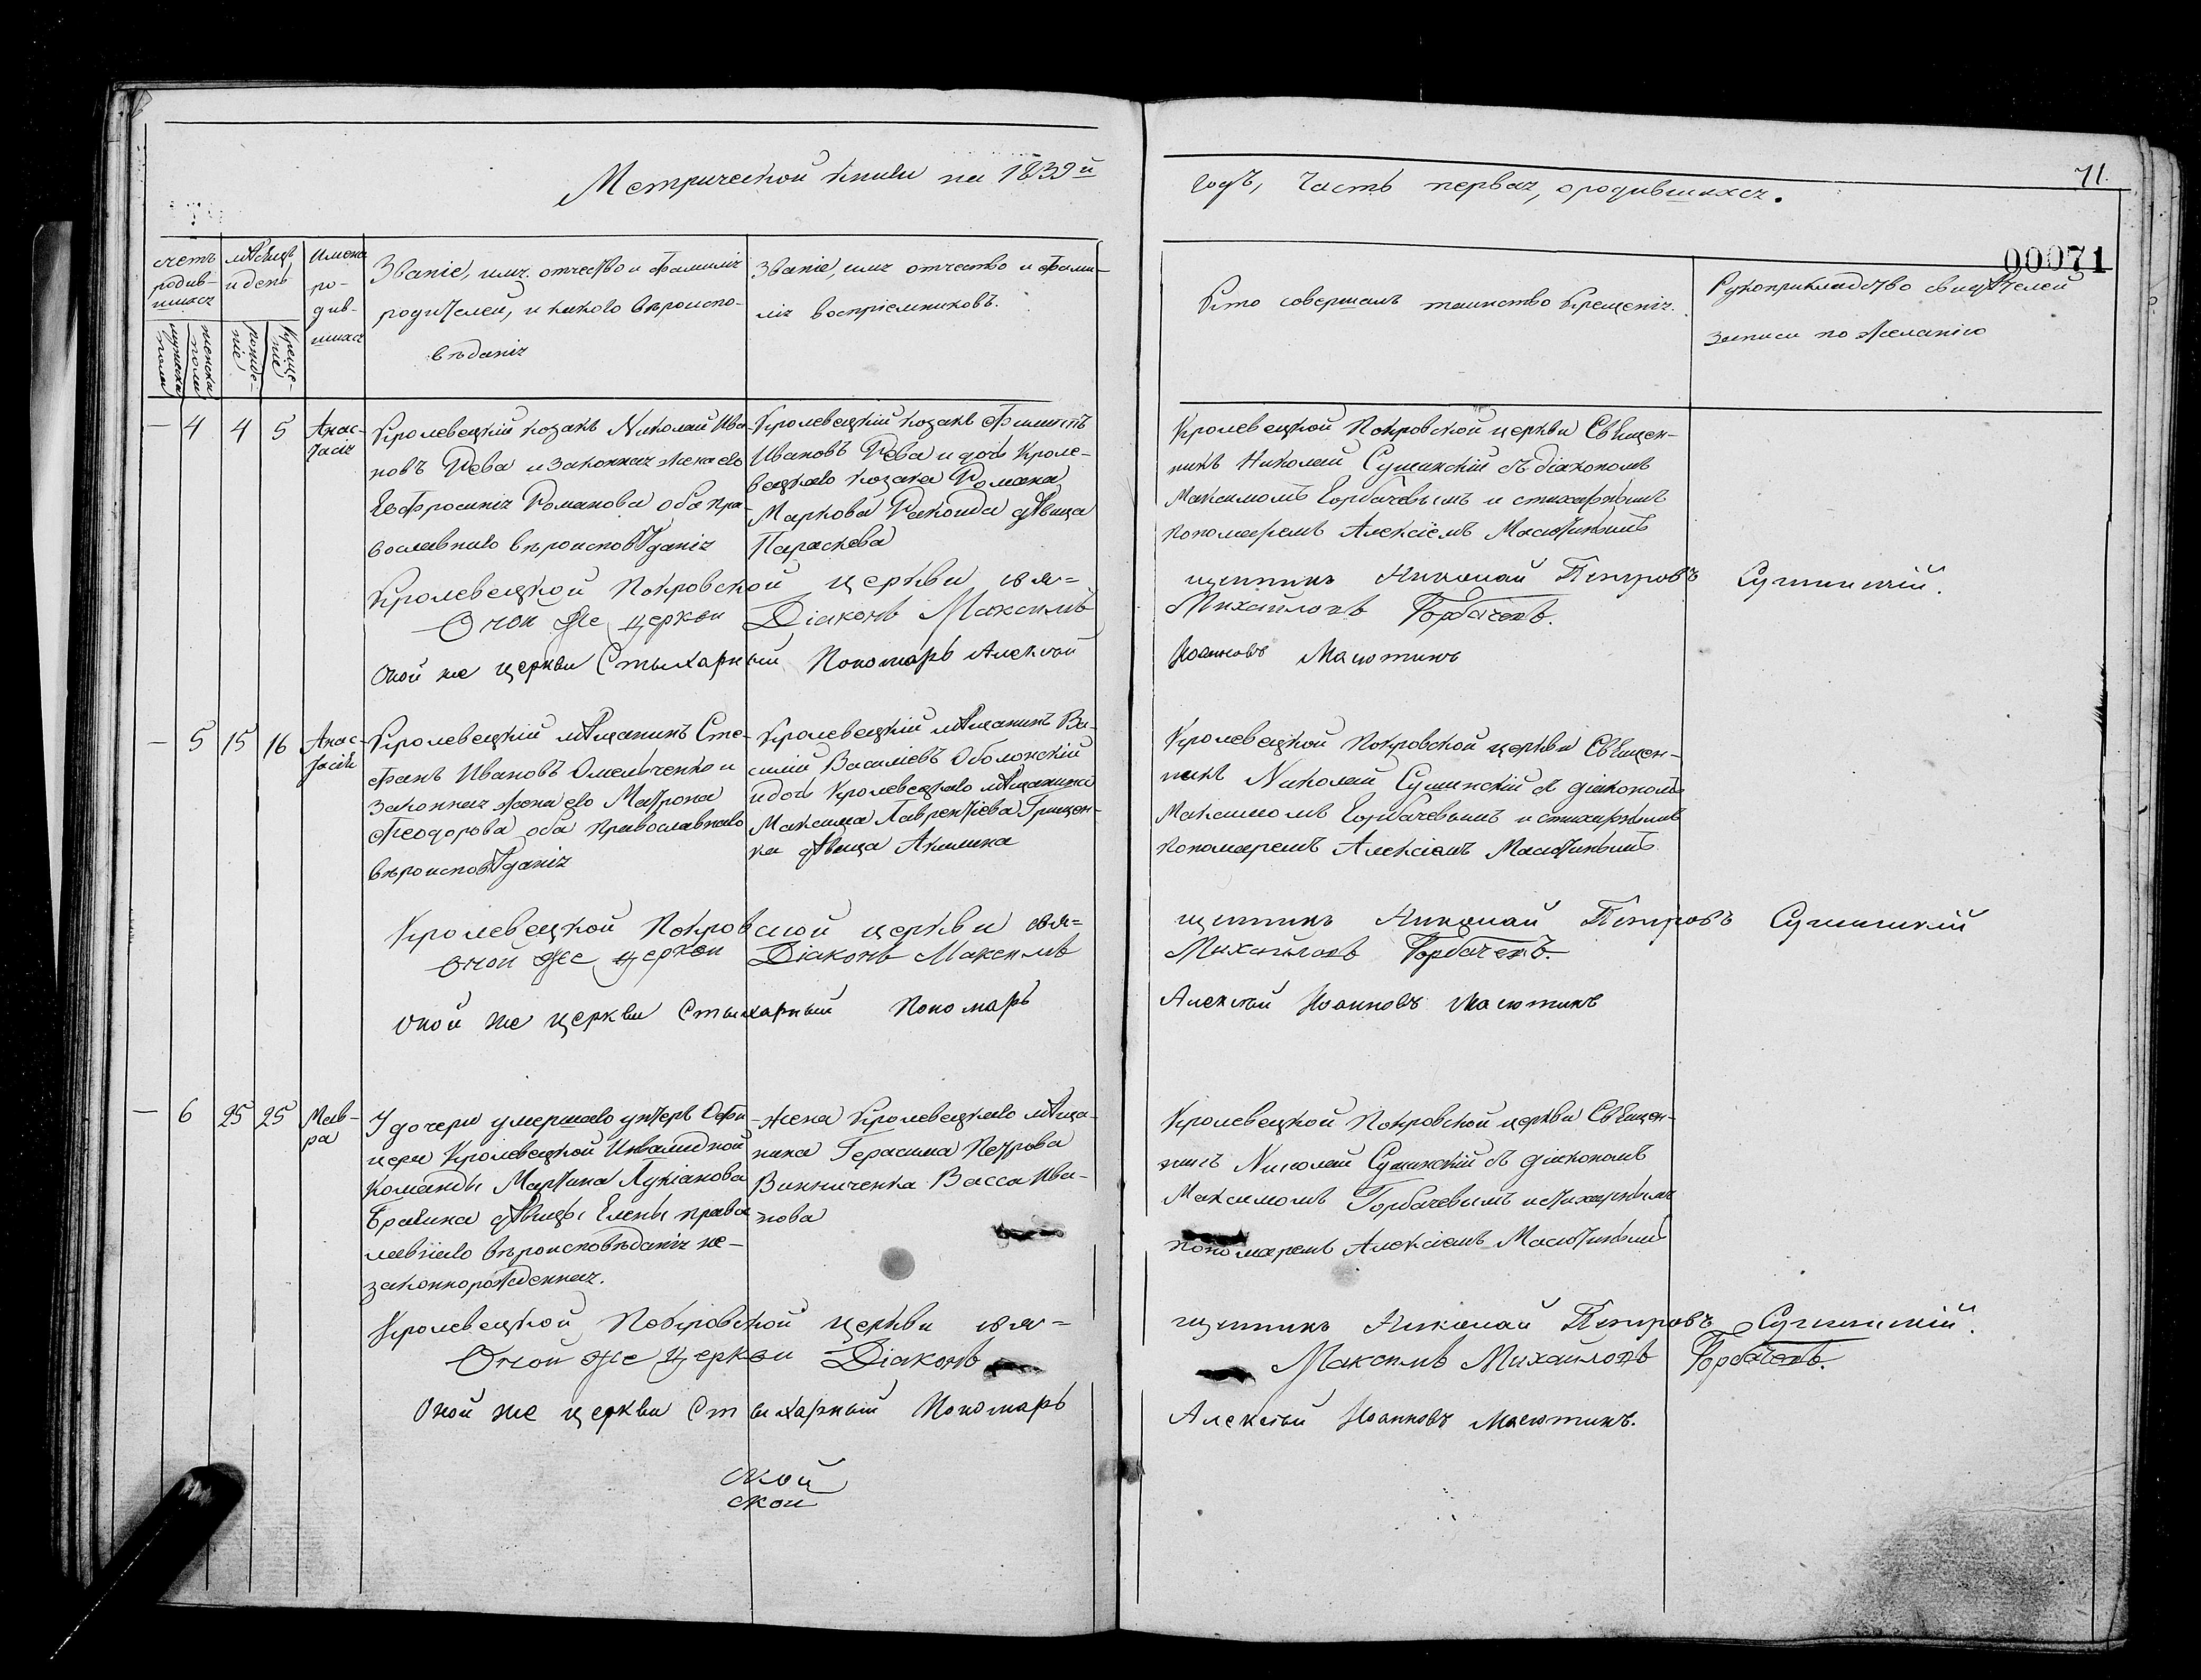 Метрической книги на 1839й
годъ, Часть первая, о родившихся.
71.
00071
счетъ родив-шихся
мѣсяцъ и день
Имена ро-див-шихся
Званіе, имя, отчество и фамилія
родителей, и какого вѣроиспо-
вѣданія
Званіе, имя отчество и фами-
лія воспріемниковъ.
Кто совершалъ таинство крещенія.
Рукоприкладство свидѣтелей
записи по желанію
мужеска пола
женска пола
рожде-ніе
креще-ніе
— 4 4 5
Анас-
тасія
Кролевецкій козакъ Николай Ива-
новъ Рева и законная жена его
Евфросинія Романова оба пра-
вославнаго вѣроисповѣданія
Кролевецкій козакъ Филиппъ
Ивановъ Рева и дочь Кроле-
вецкаго козака Романа
Маркова Ракоида дѣвица
Параскева
Кролевецкой Покровской церкви Священ-
никъ Николай Сушинскій съ діакономъ
Максимомъ Горбачевымъ и стихарнымъ
пономаремъ Алексіемъ Масютинымъ
Кролевецкой Покровской церкви свя=
щенникъ Николай Петровъ Сушинскій.
Оной же церкви Діаконъ Максимъ
Михайловъ Горбачевъ.
Оной же церкви Стыхарный Пономарь Алексѣй
Иоанновъ Масютинъ
— 5 15 16
Анас-
тасія
Кролевецкій мѣщанинъ Сте-
фанъ Ивановъ Омельченко и
законная жена его Матрона
Феодорова оба православнаго
вѣроисповѣданія
Кролевецкій мѣщанинъ Ва-
силій Василіевъ Оболонскій
и дочь Кролевецкаго мѣщанина
Максима Лаврентіева Грищен-
ка дѣвица Акилина
Кролевецкой Покровской церкви Священ-
никъ Николай Сушинскій съ діакономъ
Максимомъ Горбачевымъ и стихарнымъ
пономаремъ Алексіемъ Масютинымъ
Кролевецкой Покровской церкви свя=
щенникъ Николай Петровъ Сушинскій
Оной же церкви Діаконъ Максимъ
Михайловъ Горбачевъ.
Оной же церкви Стыхарный Пономарь
Алексѣй Иоанновъ Масютинъ
— 6 25 25
Мав-
ра
У дочери умершаго унтеръ Офи-
цера Кролевецкой Инвалидной
команды Мартина Лукіанова
Брагина дѣвицы Елены право
славнаго вѣроисповѣданія не-
законнорожденная.
Жена Кролевецкаго мѣща-
нина Герасима Петрова
Винниченка Васса Ива-
нова
Кролевецкой Покровской церкви Священ-
никъ Николай Сушинскій съ діакономъ
Максимомъ Горбачевымъ и стихарнымъ
пономаремъ Алексіемъ Масютинымъ
Кролевецкой Покровской церкви свя=
щенникъ Николай Петровъ Сушинскій.
Оной же Церкви Діаконъ
Максимъ Михайловъ Горбачевъ.
Оной же церкви Стыхарный Пономарь
Алексѣй Иоанновъ Масютинъ.
ской
ской